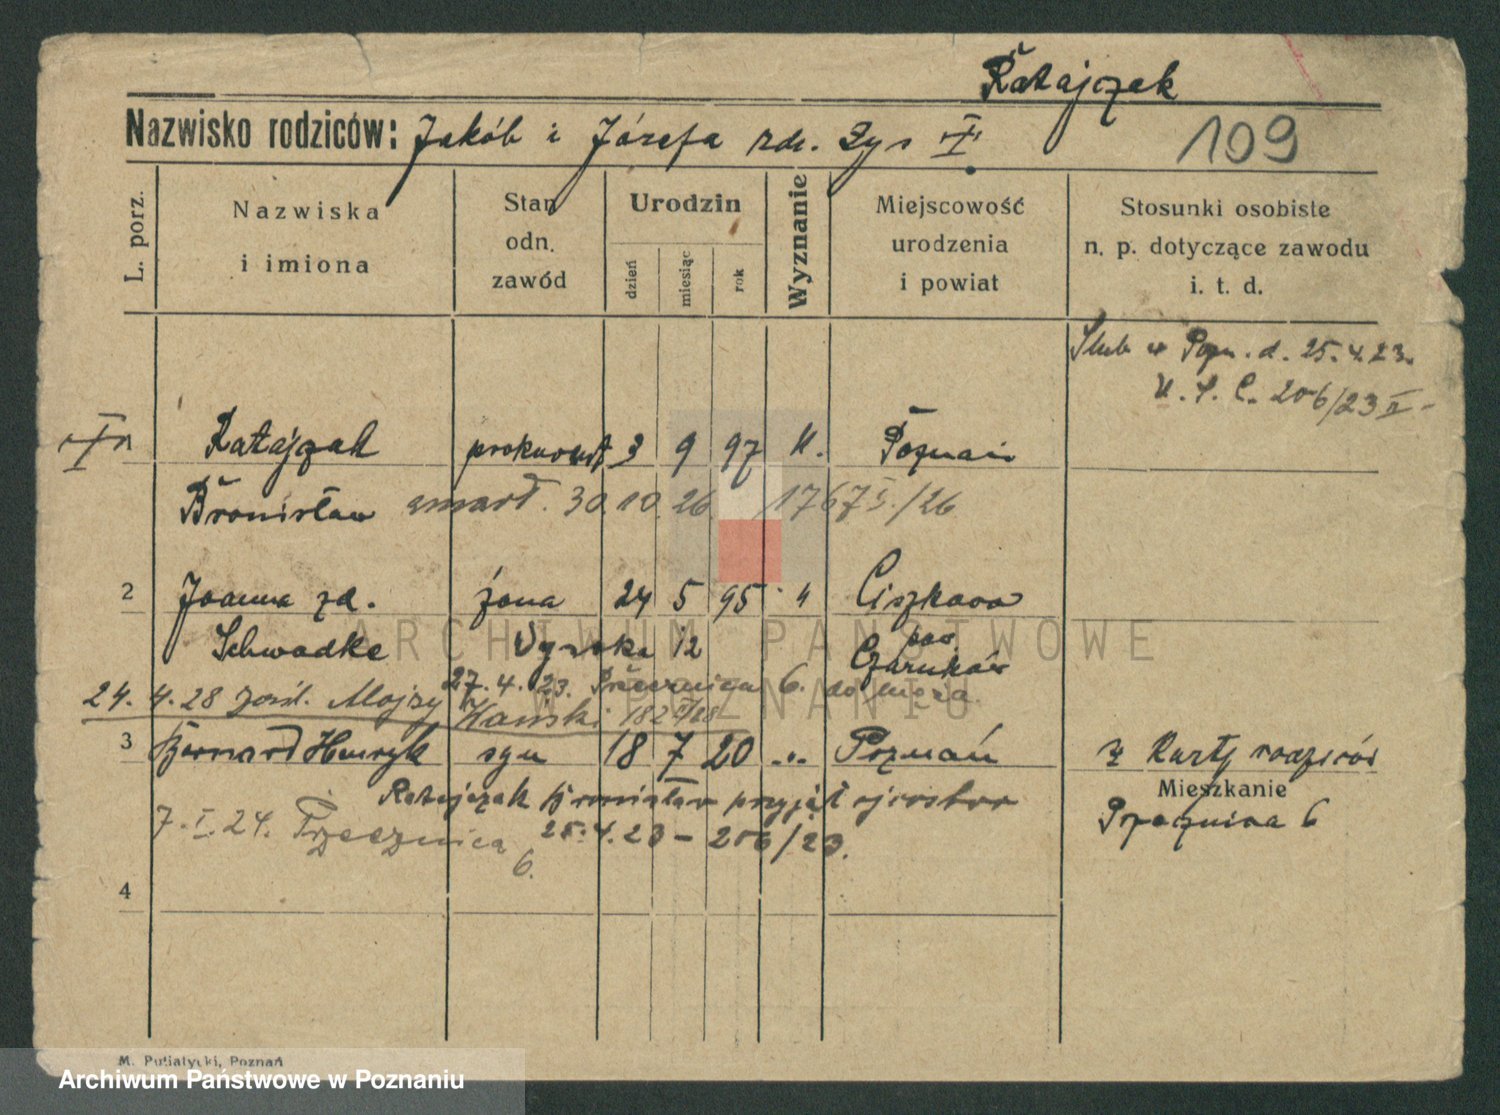 Ratajczak
Nazwisko rodziców: Jakób i Józefa zdr. Zys
109
L. porz.
Nazwiska
i imiona
Stan
odn.
zawód
Urodzin
dzień
miesiąc
rok
Wyznanie
Miejscowość
urodzenia
i powiat
Stosunki osobiste
n. p. dotyczące zawodu
i. t. d.
Ślub w Pozn. d. 25.4.23.
U. S. C. 256/23 II
Ratajczak prokurent 3 9 97 k. Poznań
Bronisław zmarł. 30.10.26 1767 I./26
2 Joanna zd. żona 24 5 95 " Ciszkowo
Schwadke 12 pow. Czarnków
27.4.23. Przecznica 6. do męża
24.4.28 1828
3 Bernard Henryk syn 18 7 20 " Poznań z Karty rodziców
Mieszkanie
Ratajczak Bronisław przyjął ojcostwo
Przecznica 6
7.I.24. Przecznica 6. 25.4.23 - 256/23.
4
M. Putiatycki, Poznań
ARCHIWUM PAŃSTWOWE
W POZNANIU
Archiwum Państwowe w Poznaniu